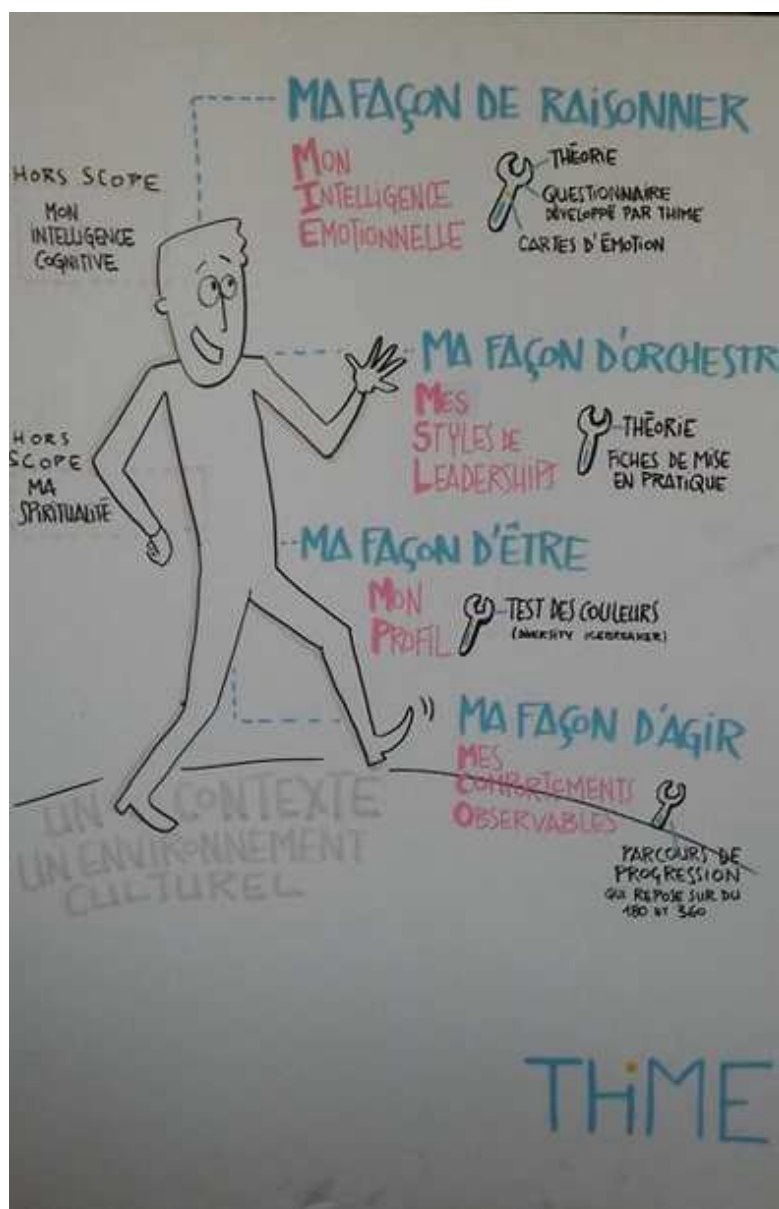 MA FAÇON DE RAISONNER
MON
INTELLIGENCE
EMOTIONNELLE
THÉORIE
QUESTIONNAIRE
DÉVELOPPÉ PAR THIME
CARTES D'ÉMOTION
HORS SCOPE
MON
INTELLIGENCE
COGNITIVE
MA FAÇON D'ORCHESTR
MES
STYLES DE
LEADERSHIPS
THÉORIE
FICHES DE MISE
EN PRATIQUE
HORS
SCOPE
MA
SPIRITUALITÉ
MA FAÇON D'ÊTRE
MON
PROFIL
TEST DES COULEURS
(DIVERSITY ICEBREAKER)
MA FAÇON D'AGIR
MES
COMPORTEMENTS
OBSERVABLES
PARCOURS DE
PROGRESSION
QUI REPOSE SUR DU
180 ET 360
UN CONTEXTE
UN ENVIRONNEMENT
CULTUREL
THiME